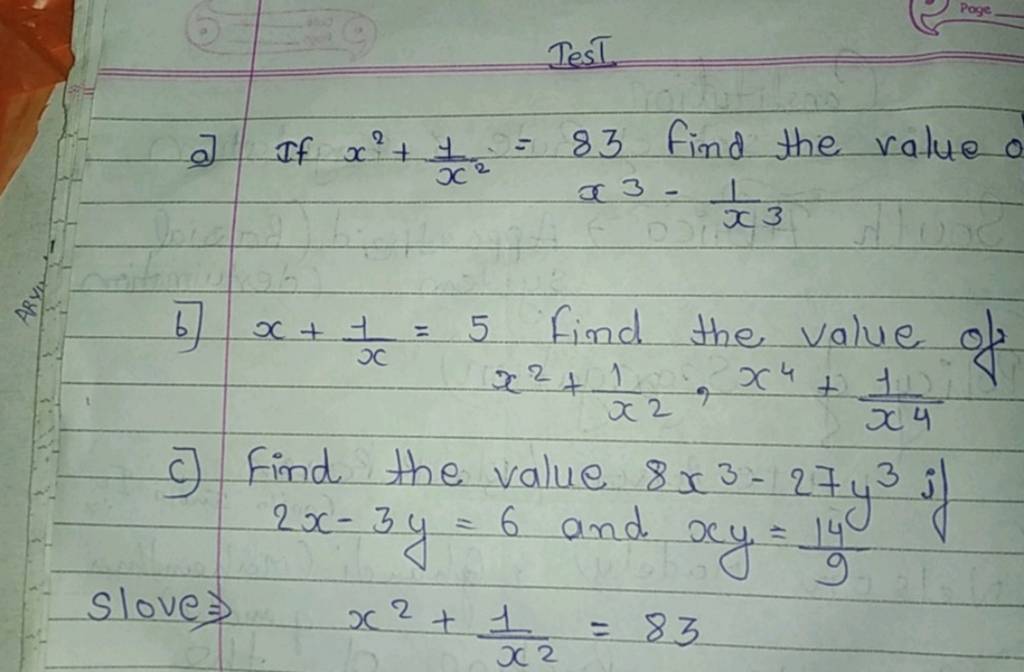 Page
Test
a] If x² + 1/x² = 83 find the value
x³ - 1/x³
b] x + 1/x = 5 find the value of
x² + 1/x², x⁴ + 1/x⁴
c] Find the value 8x³ - 27y³ if
2x - 3y = 6 and xy = 14/9
Slove⇒ x² + 1/x² = 83